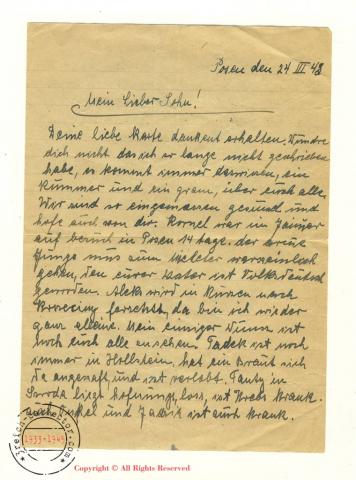 Posen den 24 III 43
Mein Lieber Sohn!
Deine liebe Karte dankent erhalten, Wundre
dich nicht das ich so lange nicht geschrieben
habe, es kommt immer ein
Kummer und ein gram, über euch alle.
Wir sind so gesund und
hofe auch von dir. Kornel war im Januar
auf besuch in Posen 14 tage. der arme
Junge mus zum
gehen, den eurer Vater ist Volksdeutsch
geworden. Alek wird in Kürzen nach
da bin ich wieder
ganz alleine. Mein einziger Wunsch ist
noch euch alle zu sehen. Tadek ist noch
immer in Hollstein, hat ein Braut sich
da angeschaft, und ist verlobt. Tante in
Sroda liegt hofnungsloss, ist Krebs Krank.
Onkel und ist auch krank.
3reich-collector.com
1933-1945
Copyright © All Rights Reserved